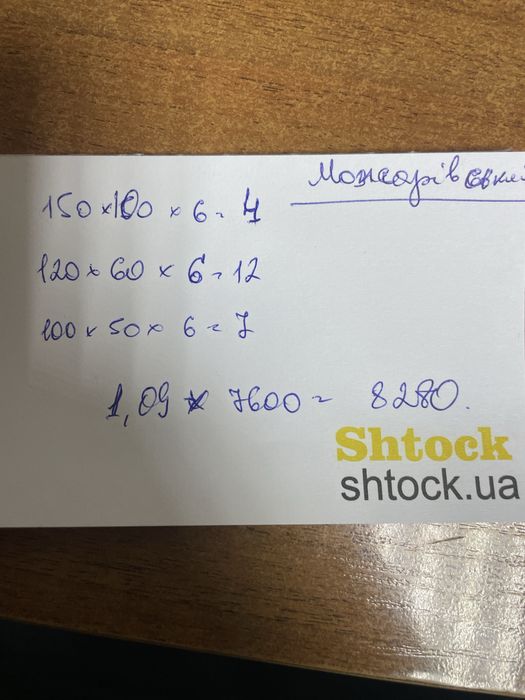 Можарівський
150 × 100 × 6 = 4
120 × 60 × 6 = 12
100 × 50 × 6 = 7
1,09 × 7600 = 8280.
Shtock
shtock.ua